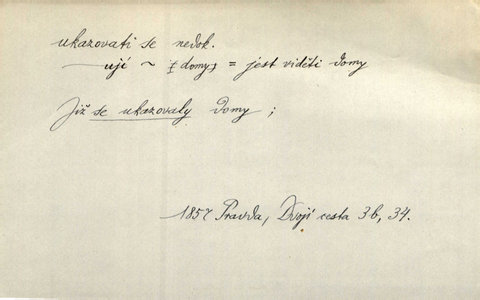 ukazovati se nedok.
— ují ~ [domy] = jest viděti domy
Již se ukazovaly domy ;
1857 Pravda, Dvojí cesta 3b, 34.